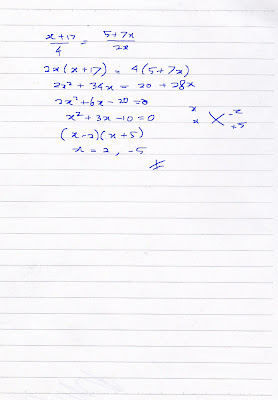 x+17/4 = 5+7x/2x
2x(x+17) = 4(5+7x)
2x² + 34x = 20 + 28x
2x² + 6x - 20 = 0
x² + 3x - 10 = 0
x -2
x +5
(x-2)(x+5)
x = 2, -5